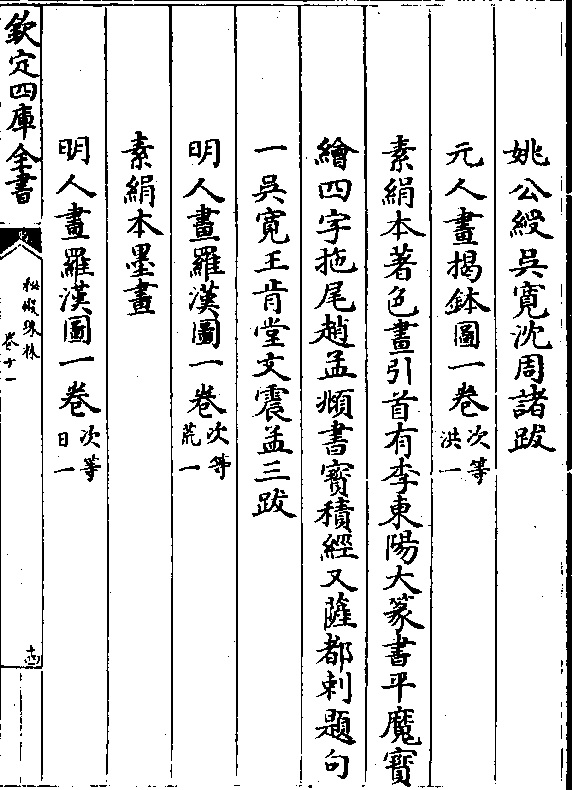 姚公綬吳寛沈周諸跋
元人畫揭鉢圖一卷次等洪一
素絹本著色畫引首有李東陽大篆書平魔寳
繪四字拖尾趙孟頫書寳積經又薩都剌題句
一吳寛王肯堂文震孟三跋
明人畫羅漢圖一卷次等荒一
素絹本墨畫
明人畫羅漢圖一卷次等日一
欽定四庫全書
秘殿珠林
卷十一
十四